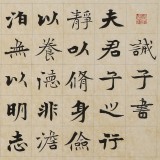 誡子書
夫君子之行
靜以脩身儉
以養德非澹
泊無以明志